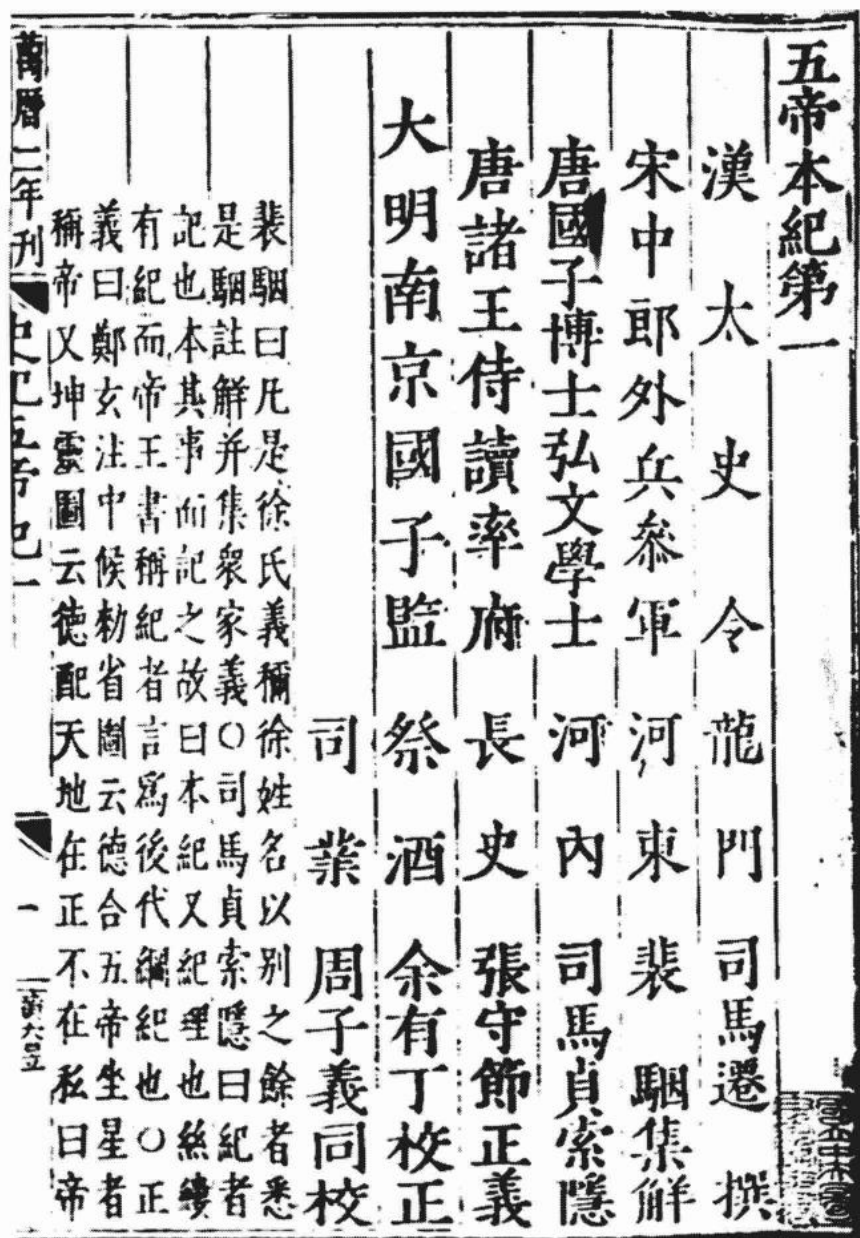 五帝本紀第一
漢太史令龍門司馬遷撰
宋中郎外兵叅軍河東裴駰集解
唐國子博士弘文學士河內司馬貞索隱
唐諸王侍讀率府長史張守節正義
大明南京國子監祭酒余有丁校正
司業周子義同校
裴駰曰凡是徐氏義稱徐姓名以別之餘者悉
是駰註解并集眾家義○司馬貞索隱曰紀者
記也本其事而記之故曰本紀又紀理也絲縷
有紀而帝王書稱紀者言爲後代綱紀也○正
義曰鄭玄注中候勑省圖云德合五帝坐星者
稱帝又坤靈圖云德配天地在正不在私曰帝
萬曆二年刊 史記五帝紀一 一